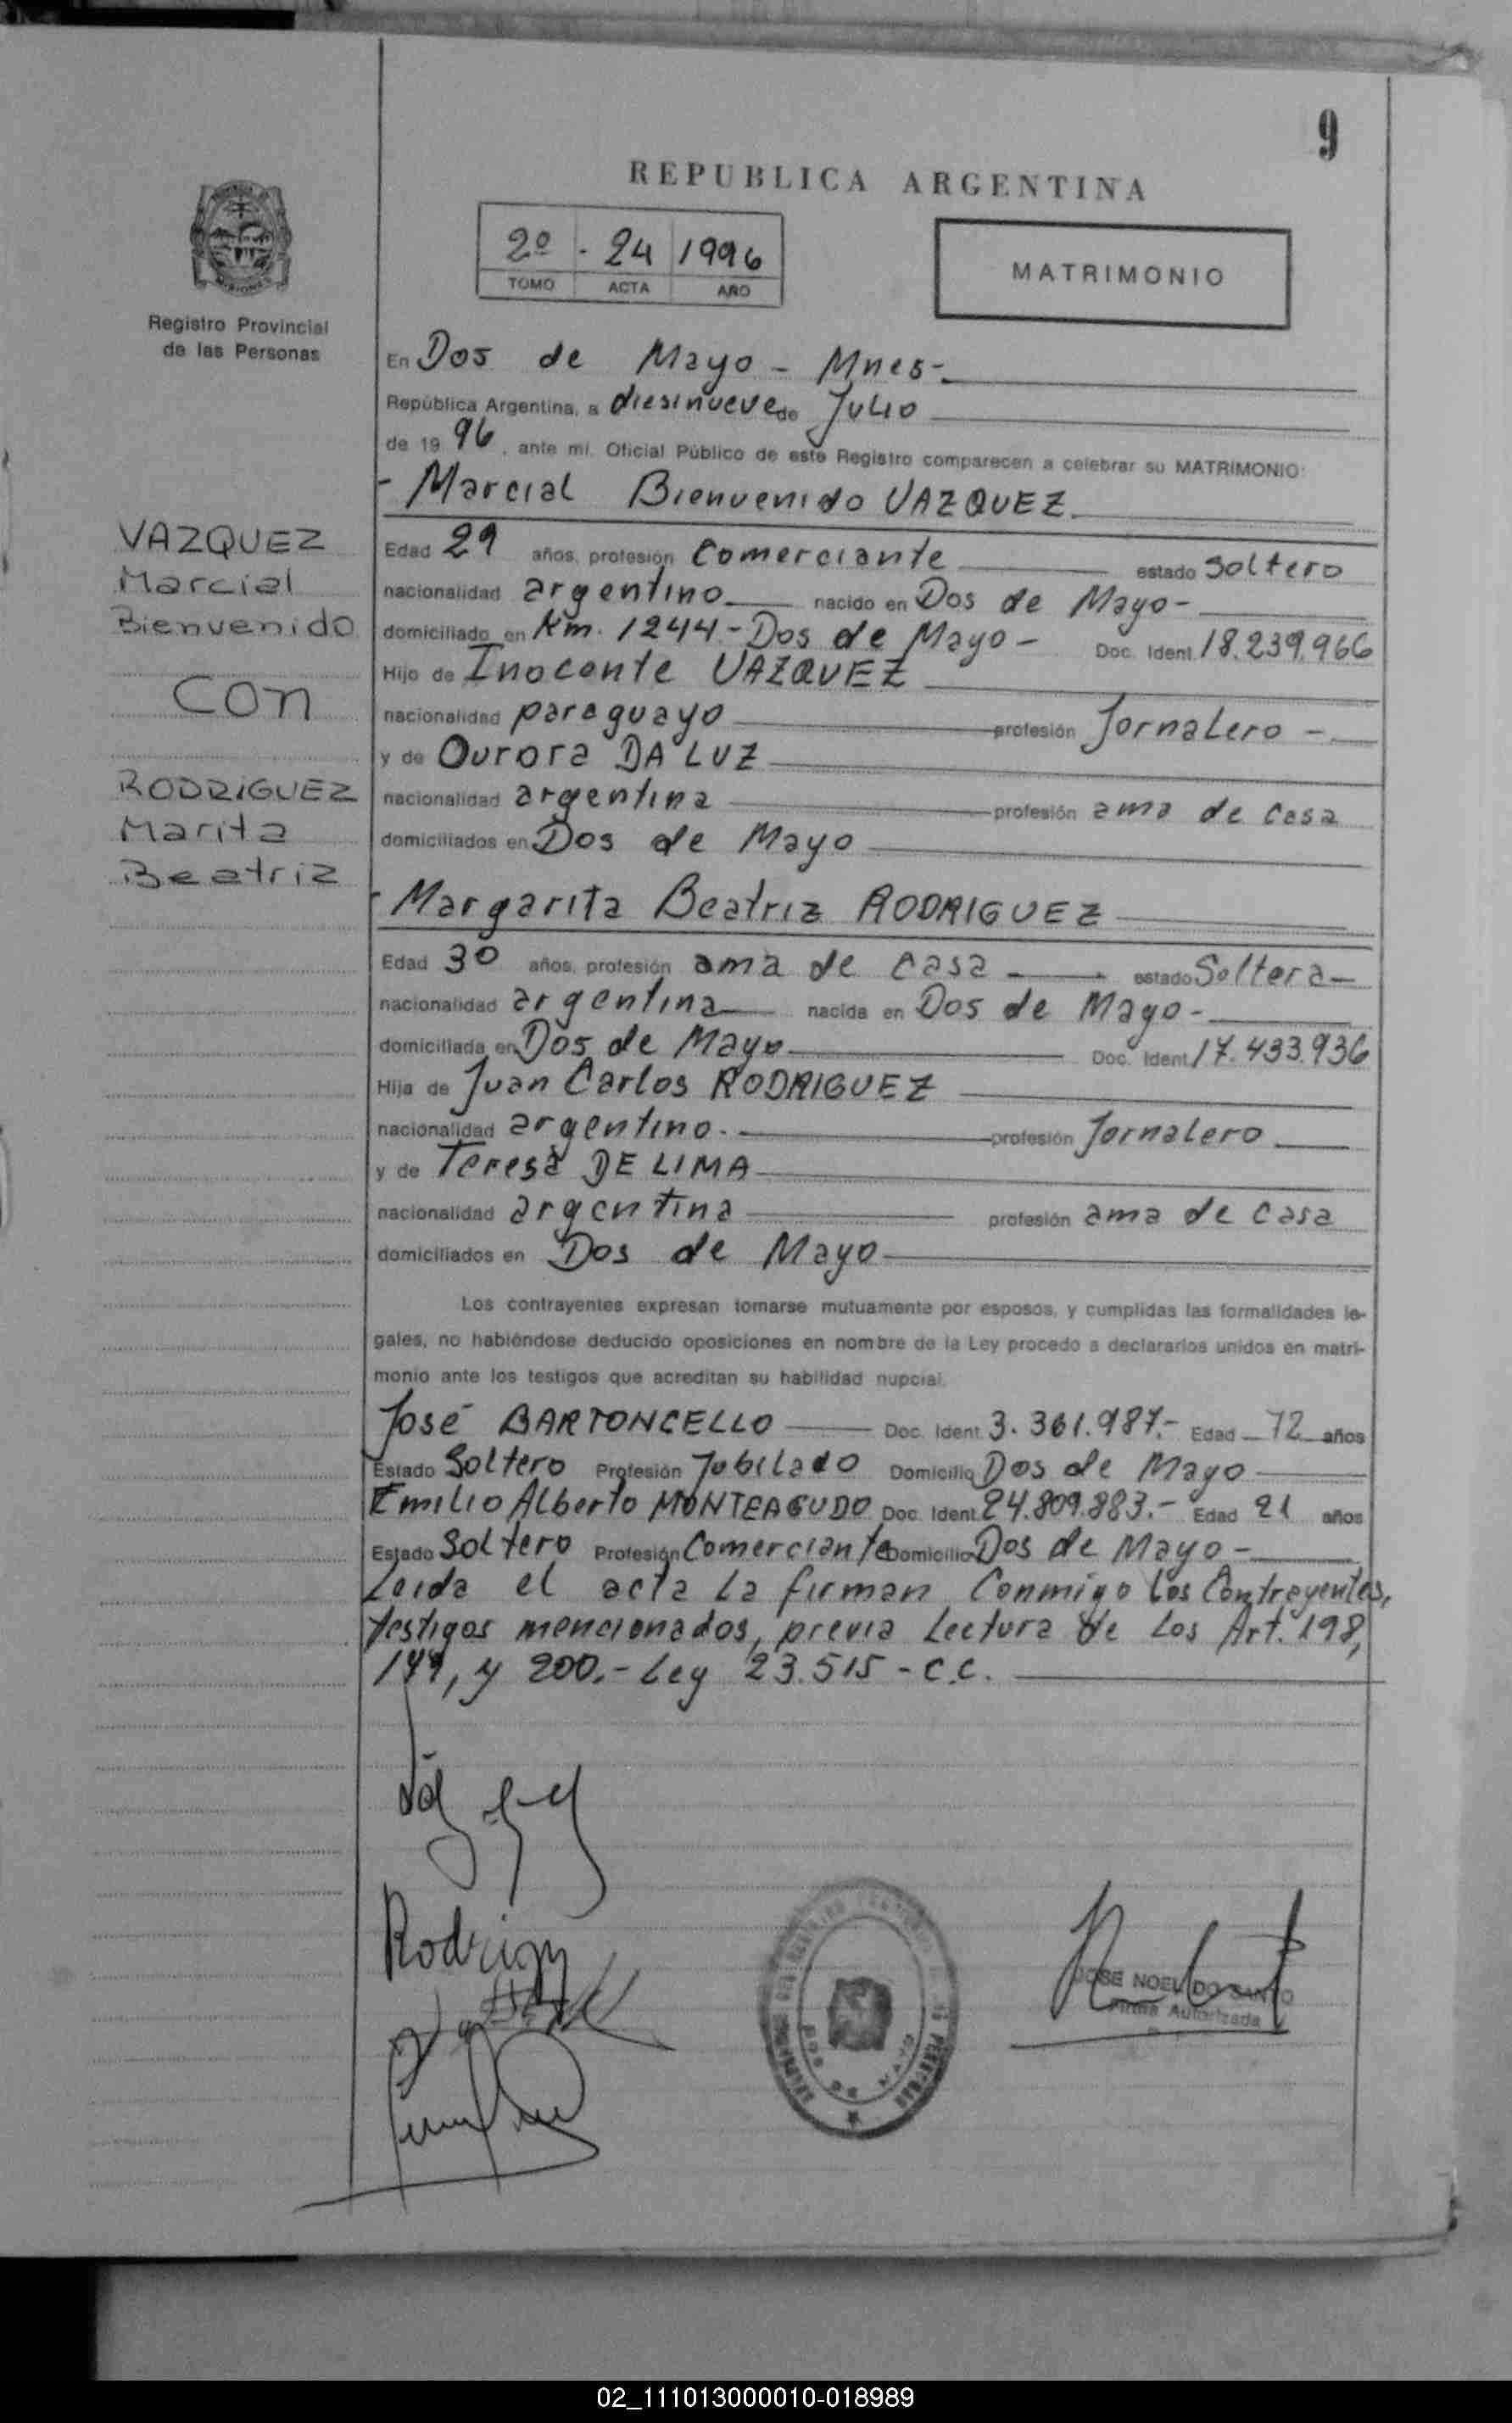 9
REPUBLICA ARGENTINA
2º - 24 1996
TOMO ACTA AÑO
MATRIMONIO
Registro Provincial
de las Personas
VAZQUEZ
Marcial
Bienvenido
Con
RODRIGUEZ
Marita
Beatriz
En Dos de Mayo - Mnes-
República Argentina, a diesinueve de Julio
de 19 96, ante mi. Oficial Público de este Registro comparecen a celebrar su MATRIMONIO:
- Marcial Bienvenido VAZQUEZ
Edad 29 años, profesión Comerciante estado Soltero
nacionalidad argentino nacido en Dos de Mayo-
domiciliado en Km. 1244 - Dos de Mayo - Doc. Ident. 18.239.966
Hijo de Inocente VAZQUEZ
nacionalidad paraguayo profesión Jornalero -
y de Ourora DA LUZ
nacionalidad argentina profesión ama de casa
domiciliados en Dos de Mayo
- Margarita Beatriz RODRIGUEZ
Edad 30 años, profesión ama de casa estado Soltera-
nacionalidad argentina nacida en Dos de Mayo-
domiciliada en Dos de Mayo Doc. Ident. 17.433.936
Hija de Juan Carlos RODRIGUEZ
nacionalidad argentino. profesión Jornalero
y de Teresa DE LIMA
nacionalidad argentina profesión ama de casa
domiciliados en Dos de Mayo
Los contrayentes expresan tomarse mutuamente por esposos, y cumplidas las formalidades le-
gales, no habiéndose deducido oposiciones en nombre de la Ley procedo a declararlos unidos en matri-
monio ante los testigos que acreditan su habilidad nupcial.
José BARTONCELLO Doc. Ident. 3.361.987.- Edad 72 años
Estado Soltero Profesión Jubilado Domicilio Dos de Mayo
Emilio Alberto MONTEAGUDO Doc. Ident. 24.809.883.- Edad 21 años
Estado Soltero Profesión Comerciante Domicilio Dos de Mayo-
Leida el acta la firman Conmigo los Contrayentes,
testigos mencionados, previa Lectura de Los Art. 198,
199, y 200.- Ley 23.515 - C.C.
JOSE NOEL DO SANTO
Firma Autorizada
DOS DE MAYO
02_111013000010-018989